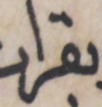 بقرات